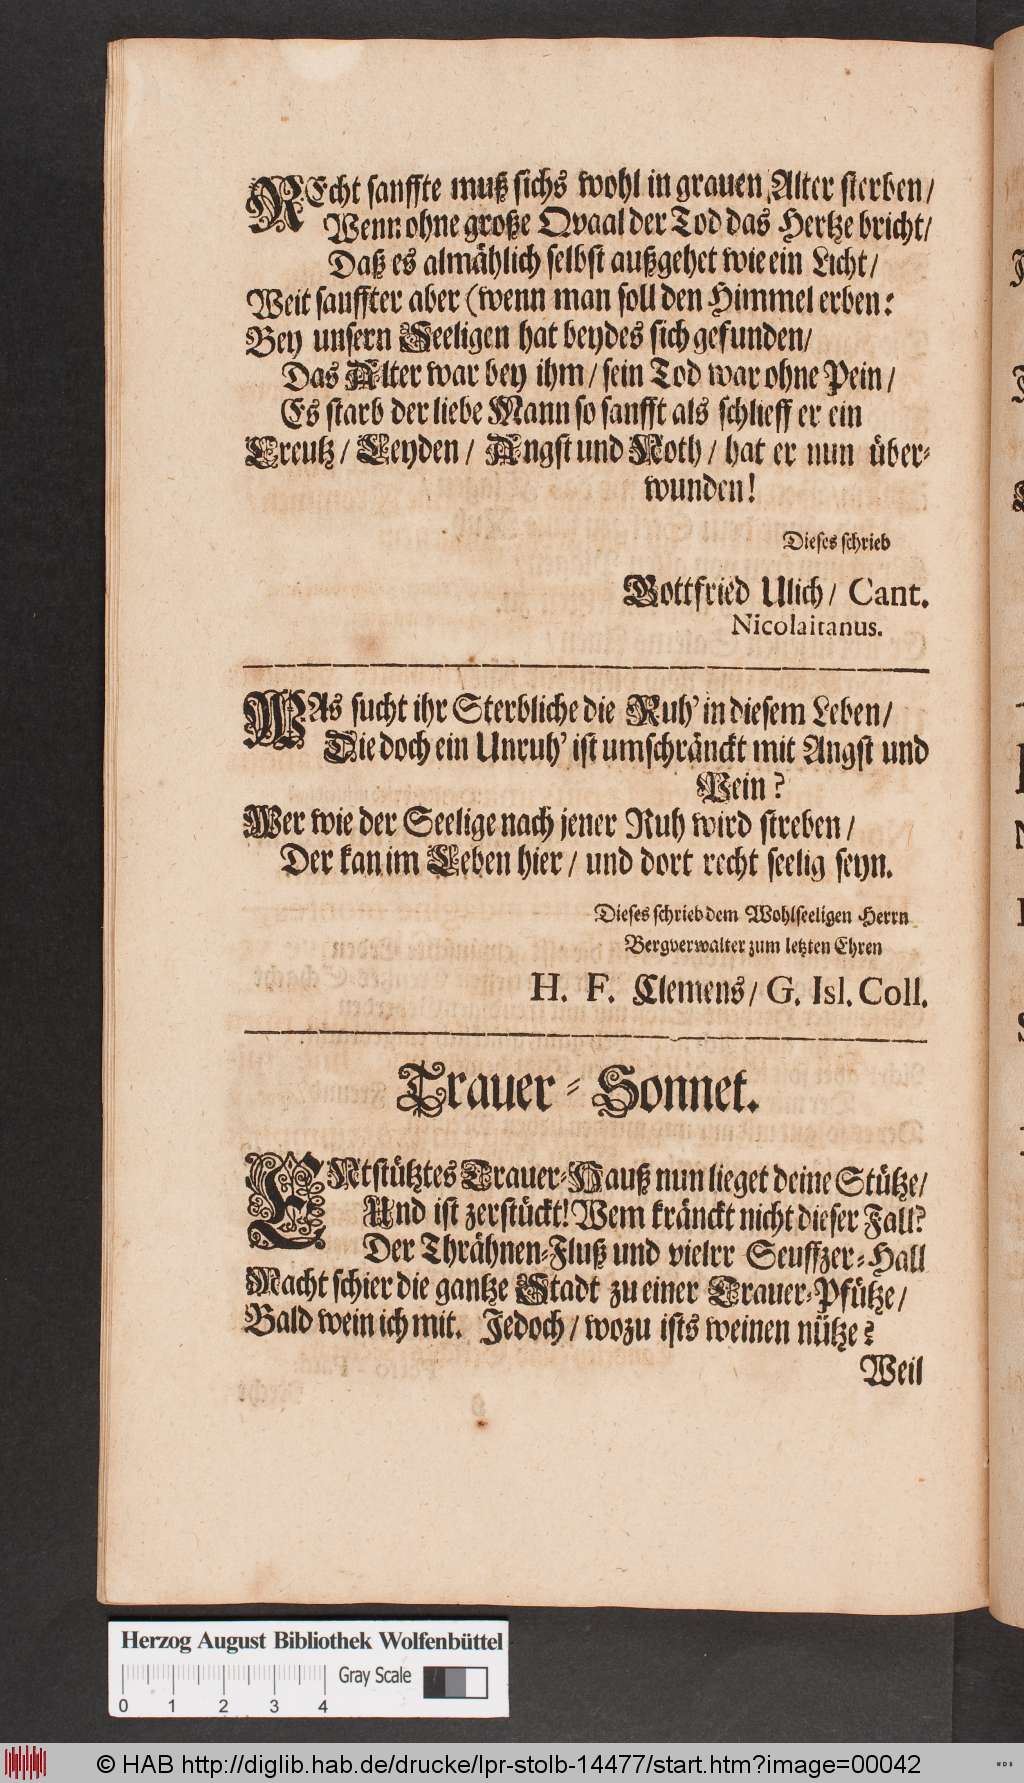 REcht sanffte muß sichs wohl in grauen Alter sterben/
Wenn ohne große Qvaal der Tod das Hertze bricht/
Daß es almählich selbst außgehet wie ein Licht/
Weit sauffter aber (wenn man soll den Himmel erben:
Bey unsern Seeligen hat beydes sich gefunden/
Das Alter war bey ihm/ sein Tod war ohne Pein/
Es starb der liebe Mann so sanfft als schlieff er ein
Creutz/ Leyden/ Angst und Noth/ hat er nun über-
wunden!
Dieses schrieb
Gottfried Ulich/ Cant.
Nicolaitanus.
WAs sucht ihr Sterbliche die Ruh' in diesem Leben/
Die doch ein Unruh' ist umschränckt mit Angst und
Pein?
Wer wie der Seelige nach jener Ruh wird streben/
Der kan im Leben hier/ und dort recht seelig seyn.
Dieses schrieb dem Wohlseeligen Herrn
Bergverwalter zum letzten Ehren
H. F. Clemens/ G. Isl. Coll.
Trauer-Sonnet.
ENtstütztes Trauer-Hauß nun lieget deine Stütze/
Und ist zerstückt! Wem kränckt nicht dieser Fall?
Der Thrähnen-Fluß und vielrr Seuffzer-Hall
Macht schier die gantze Stadt zu einer Trauer-Pfütze/
Bald wein ich mit. Jedoch/ wozu ists weinen nütze?
Weil
Herzog August Bibliothek Wolfenbüttel
Gray Scale
0 1 2 3 4
© HAB http://diglib.hab.de/drucke/lpr-stolb-14477/start.htm?image=00042